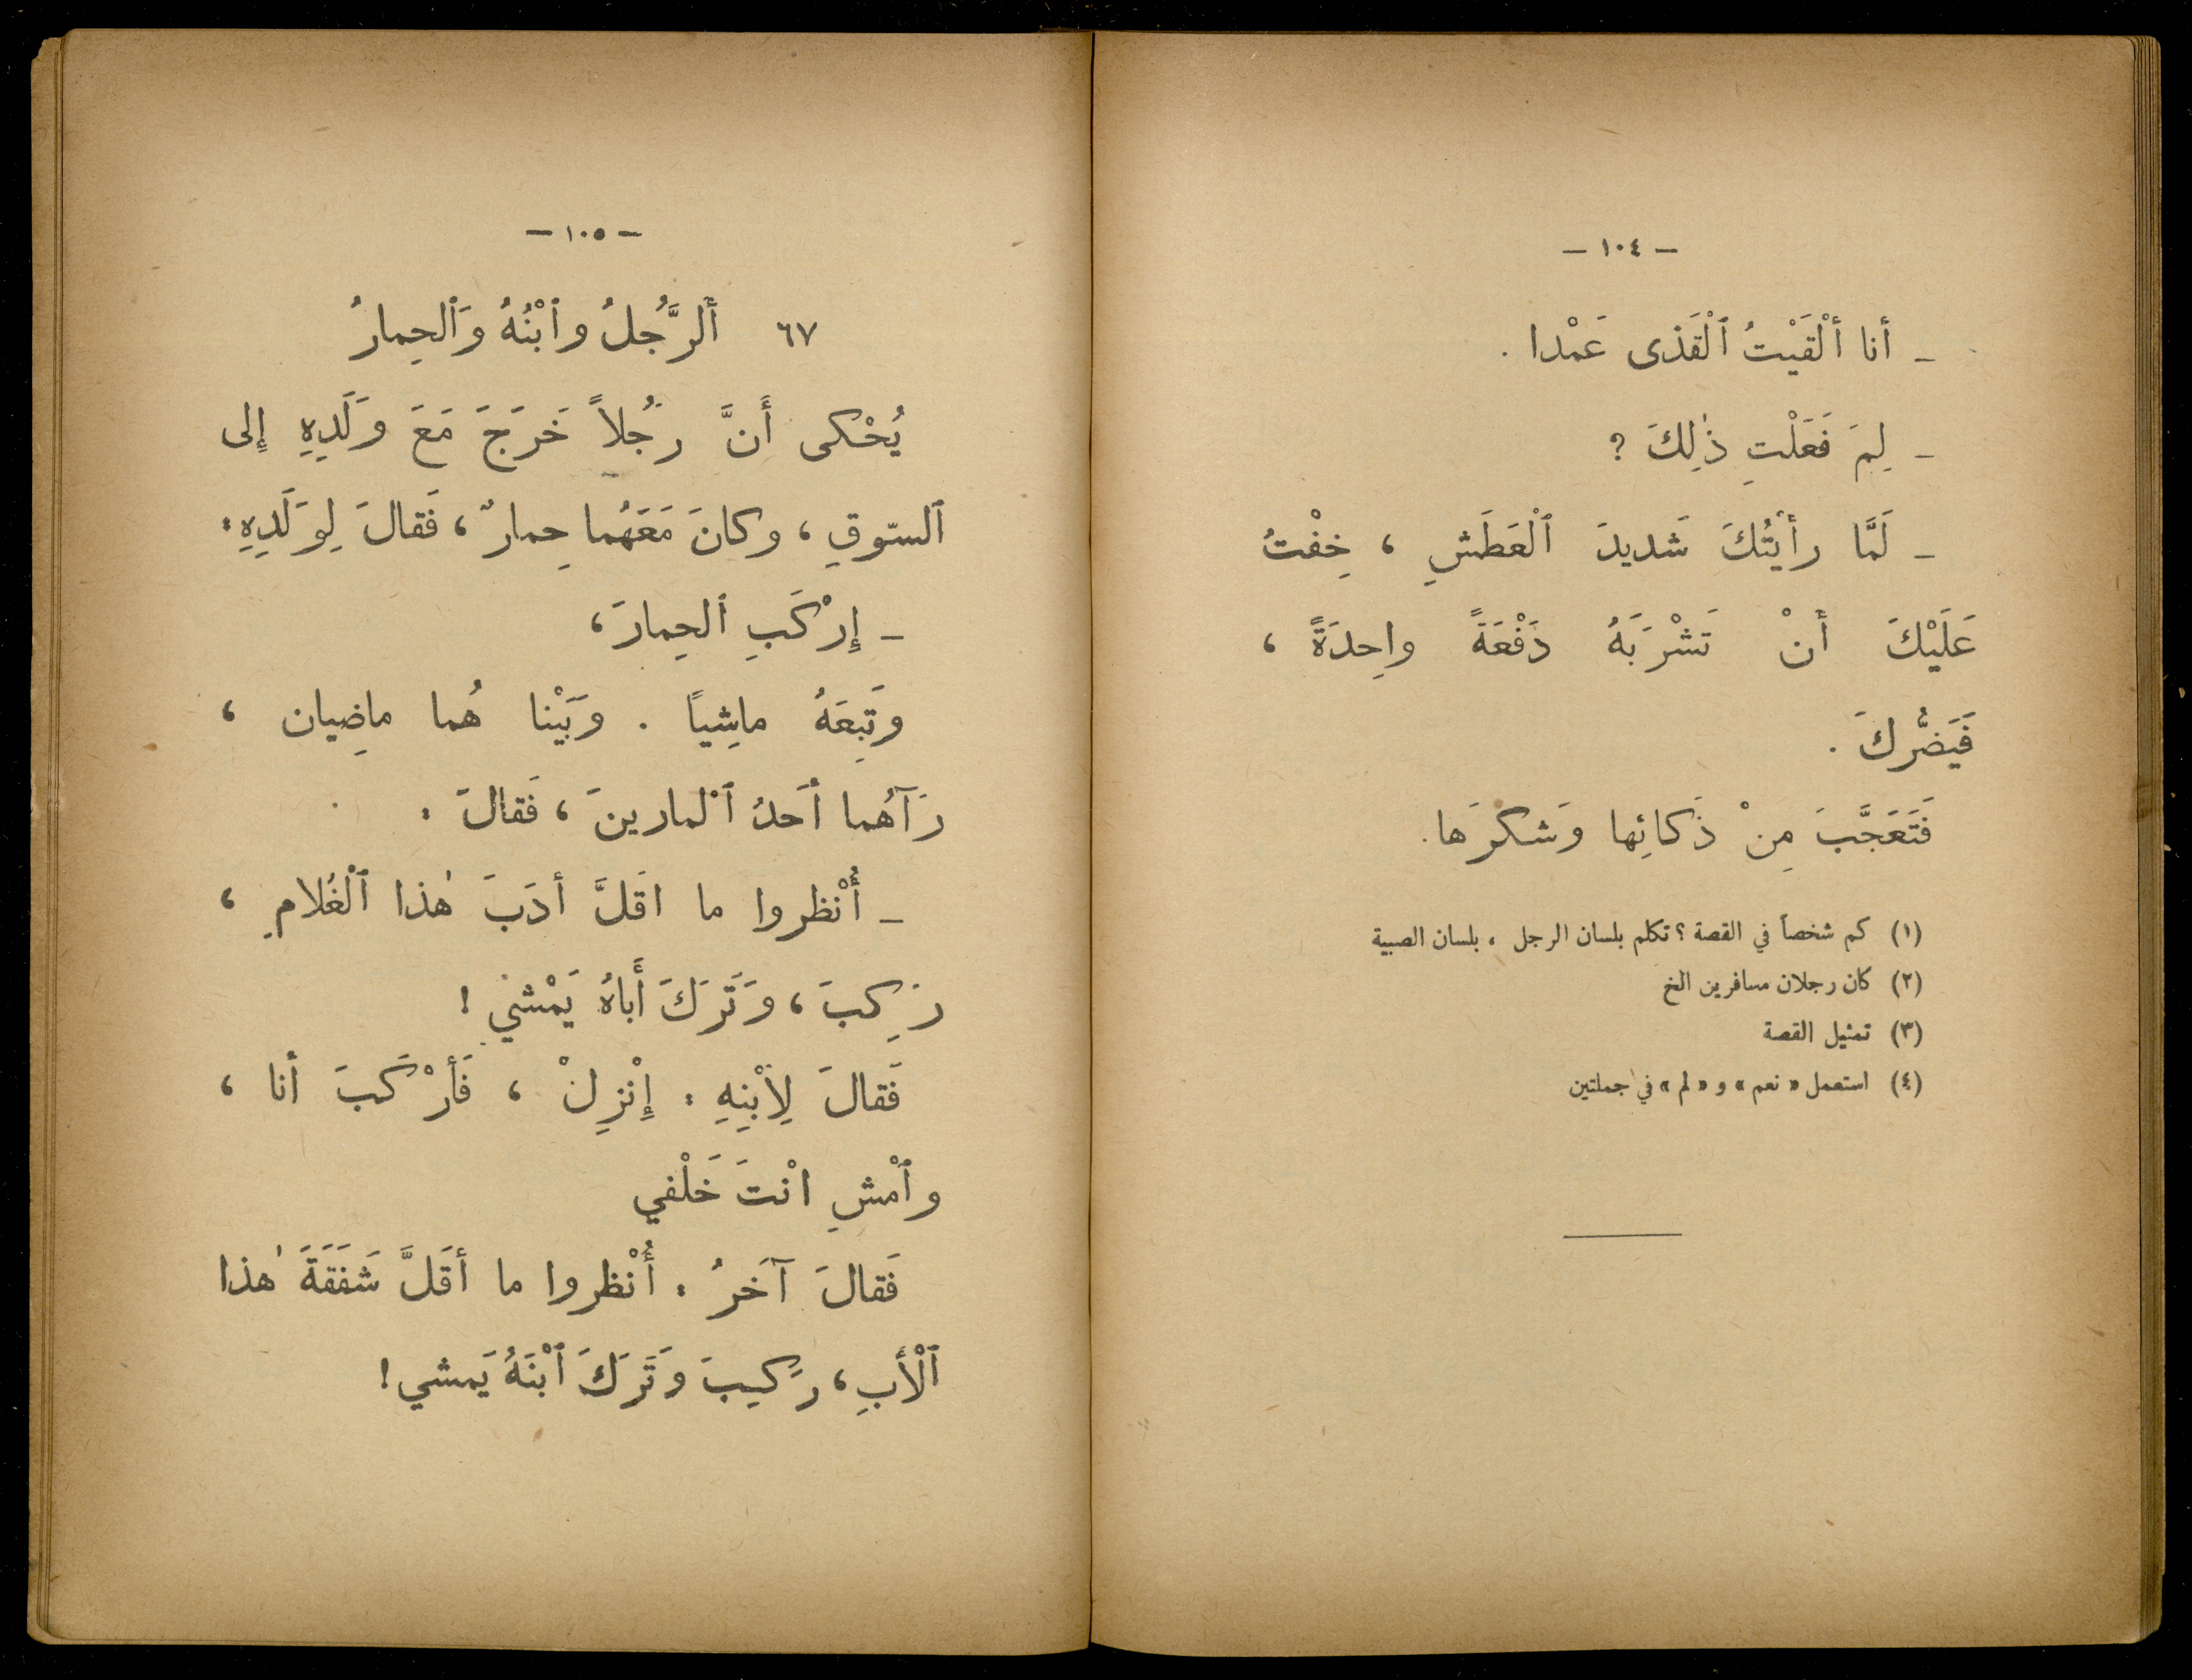 — ١٠٤ —
ـ أنا أَلْقَيْتُ ٱلْقَذى عَمْدا .
ـ لِمَ فَعَلْتِ ذٰلِكَ ؟
ـ لَمَّا رأَيْتُكَ شَديدَ ٱلْعَطَشِ ، خِفْتُ
عَلَيْكَ أَنْ تَشْرَبَهُ دَفْعَةً واحِدَةً ،
فَيَضُّركَ .
فَتَعَجَّبَ مِنْ ذَكائِها وَشكرَها .
(١) كم شخصاً في القصة ؟ تكلم بلسان الرجل ، بلسان الصبية
(٢) كان رجلان مسافرين الخ
(٣) تمثيل القصة
(٤) استعمل « نعم » و « لم » في جملتين
— ١٠٥ —
٦٧ أَلرَّجُلُ وٱبْنُهُ وَٱلحِمارُ
يُحْكى أَنَّ رَجُلاً خَرَجَ مَعَ وَلَدِهِ إِلى
ٱلسّوقِ ، وكانَ مَعَهُما حِمارٌ ، فَقالَ لِوَلَدِهِ :
ـ إِرْكَبِ ٱلحِمارَ ،
وَتَبِعَهُ ماشِياً . وَبَيْنا هُما ماضِيان ،
رَآهُما أَحَدُ ٱلْمارينَ ، فَقالَ :
ـ أُنْظروا ما اقَلَّ أدَبَ هٰذا ٱلْغُلامِ ،
رَكِبَ ، وَتَرَكَ أَباهُ يَمْشي !
فَقالَ لِأَبْنِهِ : إِنْزِلْ ، فَأَرْكَبَ أنا ،
وٱمْشِ انْتَ خَلْفي
فَقالَ آخَرُ : أُنْظروا ما أقَلَّ شَفَقَةَ هٰذا
ٱلْأَبِ ، رَكِبَ وَتَرَكَ ٱبْنَهُ يَمشي !